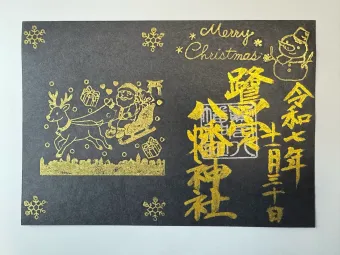 Merry
Christmas
鷺宮
八幡神社
令和七年
十一月三十日